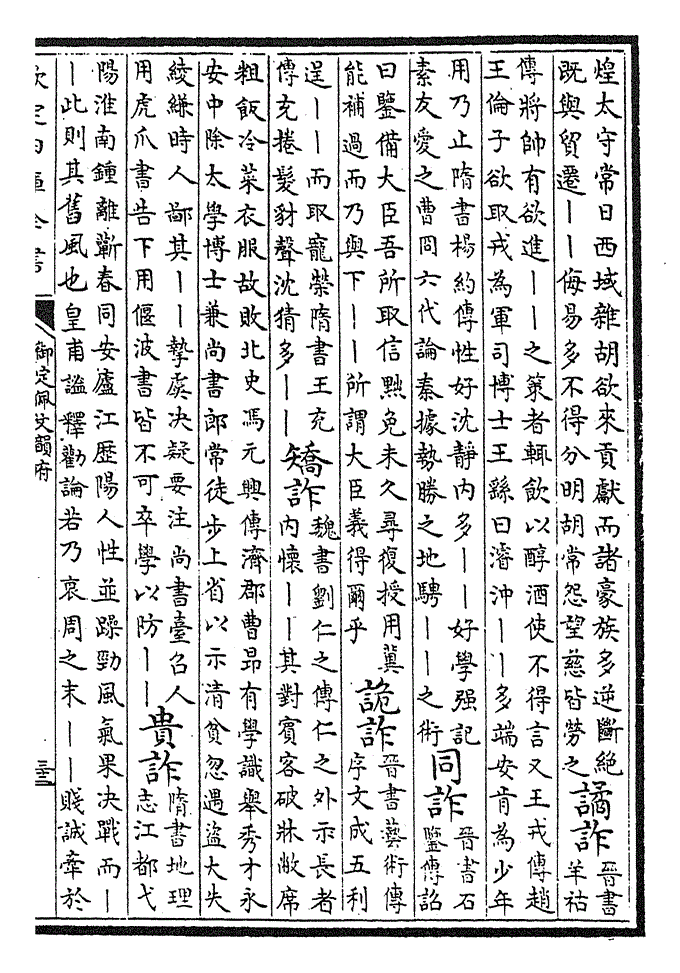 煌太守常日西域雜胡欲來貢獻而諸豪族多逆斷絕
既與貿遷丨丨侮易多不得分明胡常怨望慈皆勞之
譎詐
晉書
羊祜
傳將帥有欲進丨丨之策者輒飲以醇酒使不得言又王戎傳趙
王倫子欲取戎為軍司博士王繇曰濬沖丨丨多端安肯為少年
用乃止隋書楊約傳性好沈靜內多丨丨好學强記
素友愛之曹冏六代論秦據勢勝之地騁丨丨之術
同詐
晉書石
鑒傳詔
曰鑒備大臣吾所取信黜免未久尋復授用冀
能補過而乃與下丨丨所謂大臣義得爾乎
詭詐
晉書藝術傳
序文成五利
逞丨丨而取寵榮隋書王充
傳充捲髮豺聲沈猜多丨丨
矯詐
魏書劉仁之傳仁之外示長者
內懷丨丨其對賓客破牀敝席
粗飯冷菜衣服故敗北史馮元興傳濟郡曹昂有學識舉秀才永
安中除太學博士兼尚書郎常徒步上省以示清貧忽遇盜大失
綾縑時人鄙其丨丨摯虞決疑要注尚書臺召人
用虎爪書告下用偃波書皆不可卒學以防丨丨
貴詐
隋書地理
志江都弋
陽淮南鍾離蘄春同安廬江歷陽人性並躁勁風氣果決戰而丨
丨此則其舊風也皇甫謐釋勸論若乃衰周之末丨丨賤誠牽於
欽定四庫全書
御定佩文韻府